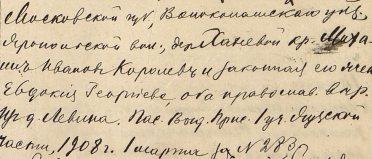 Московской губ, Волоколамскаго уѣз.
Яропольской вол., дер Ханевой кр. Миха
илъ Ивановъ Королевъ и законная его жена
Евдокія Георгіева, оба православ.
Пас. Выд. Прис. 1 уч
части, 1908 г. 1 марта за № 283